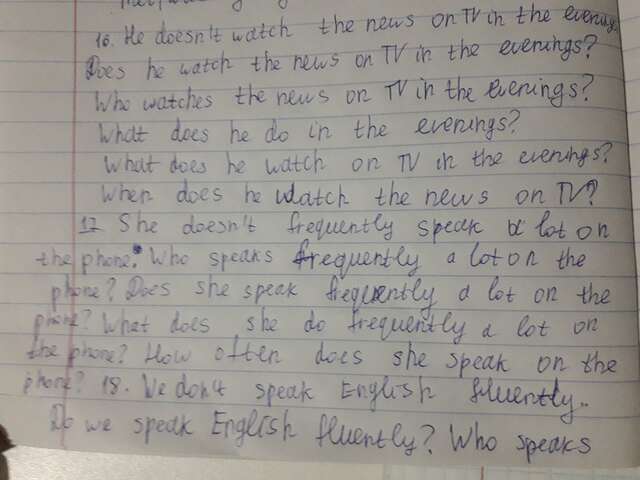 16. He doesn't watch the news on TV in the evening.
Does he watch the news on TV in the evenings?
Who watches the news on TV in the evenings?
What does he do in the evenings?
What does he watch on TV in the evenings?
When does he watch the news on TV?
17 She doesn't frequently speak a lot on
the phone. Who speaks frequently a lot on the
phone? Does she speak frequently a lot on the
phone? What does she do frequently a lot on
the phone? How often does she speak on the
phone? 18. We don't speak English fluently..
Do we speak English fluently? Who speaks